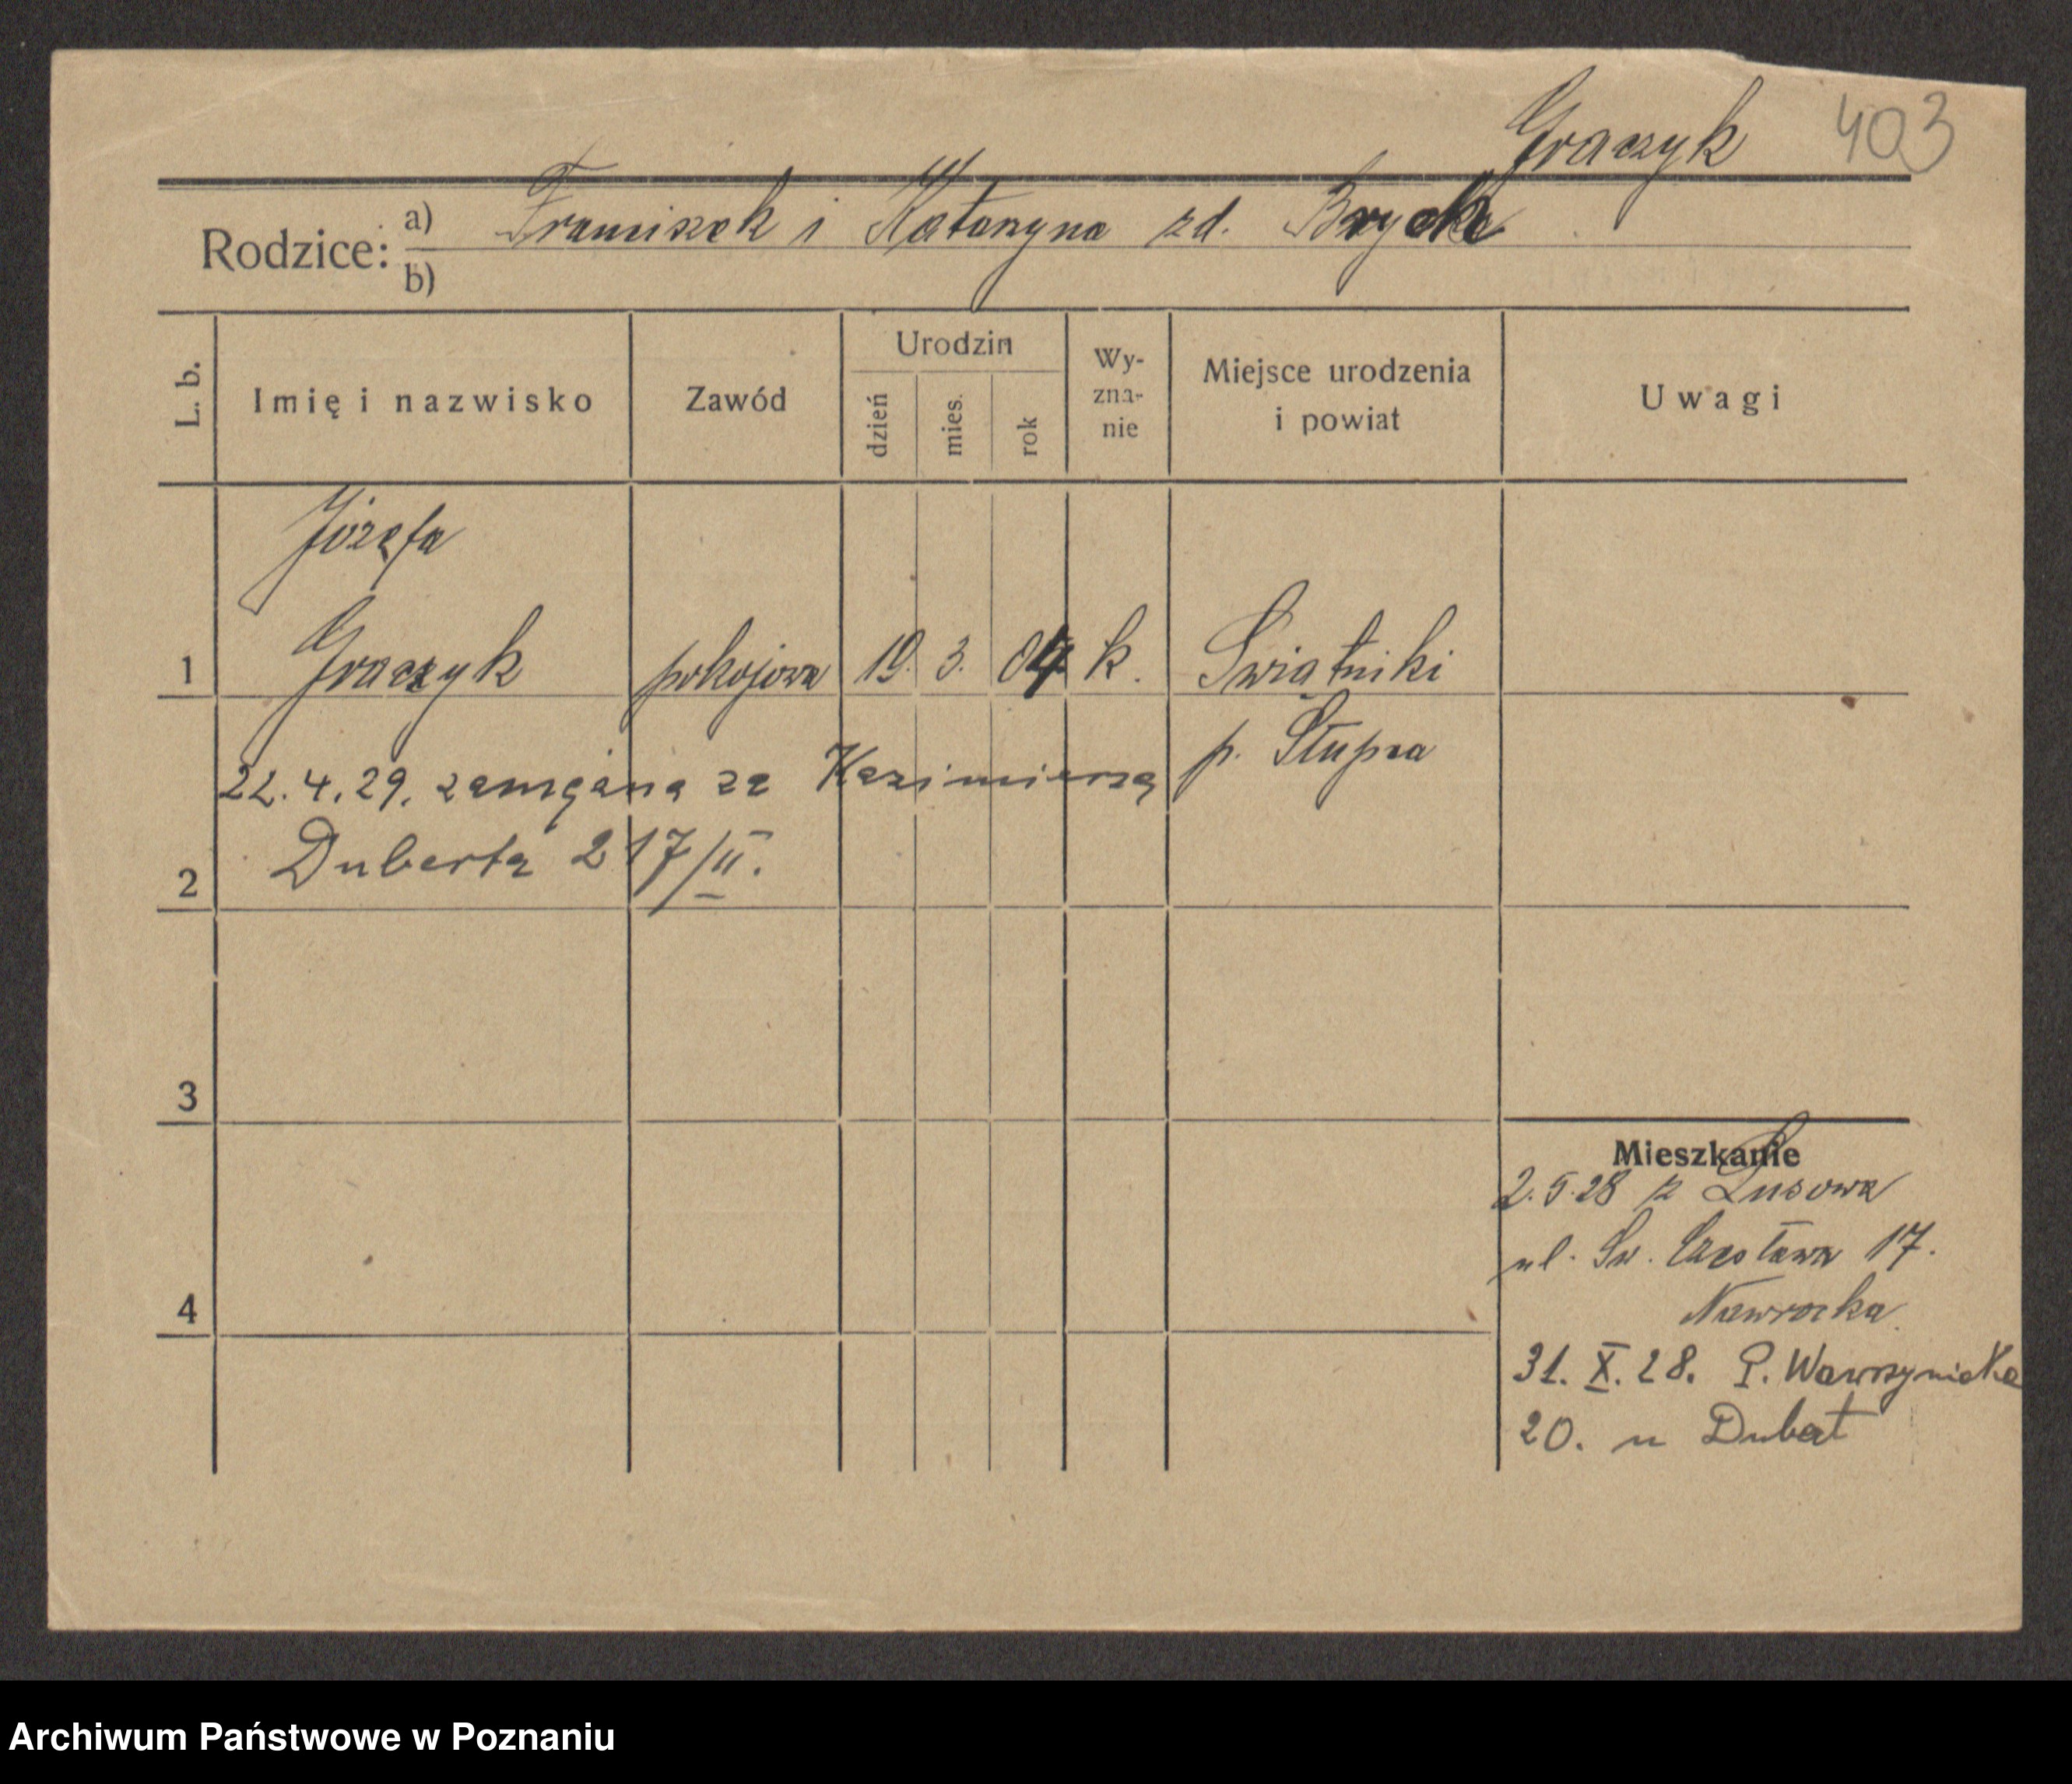 Graczyk 403
Rodzice: a) Franciszek i Katarzyna zd.
b)
L. b. Imię i nazwisko Zawód Urodzin dzień mies. rok Wy-zna-nie Miejsce urodzenia i powiat Uwagi
Józefa
1 Graczyk pokojowa 19. 3. 04 k. Świątniki
p. Słupca
22.4.29. zamężna za Kazimierzą
2 Duberta 217/II.
3
Mieszkanie
2.5.28 z Lusowa
ul. Św. Czesława 17.
4 Nawrocka
31. X. 28. P. Wawrzyniaka
20. u Dubert
Archiwum Państwowe w Poznaniu